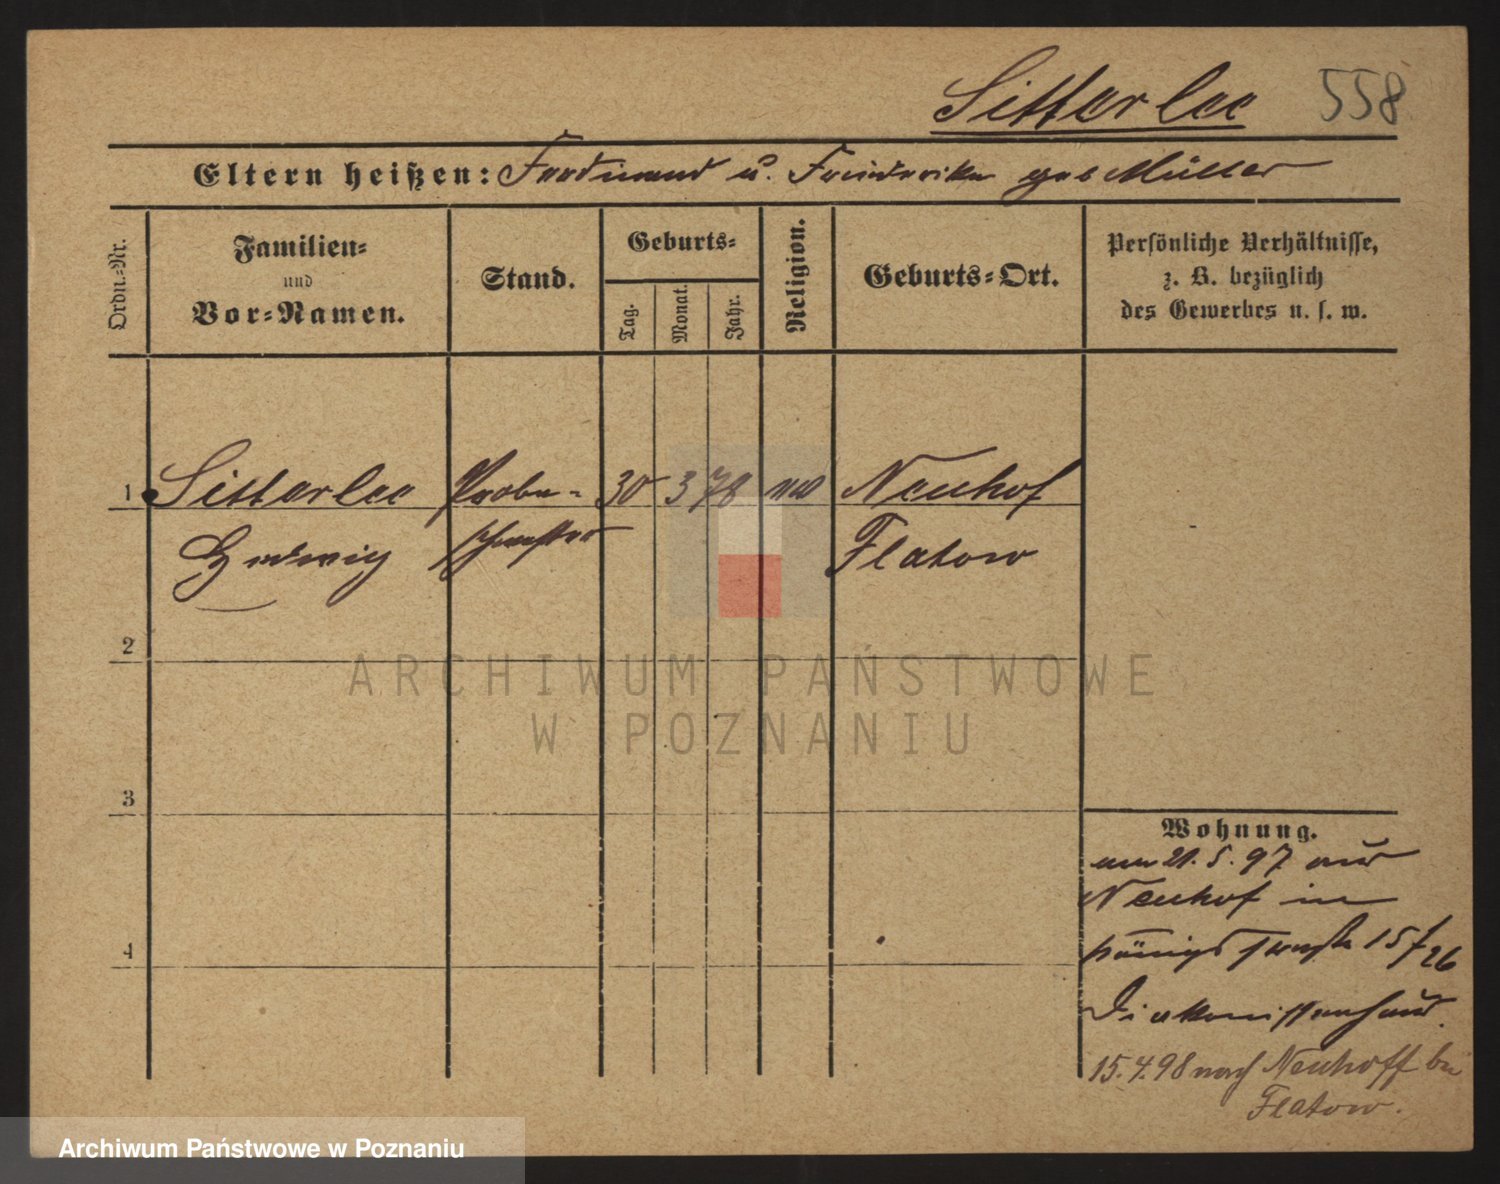 Sitterlee 558
Eltern heißen: Ferdinand u. Friederike geb Müller
Ordn.-Nr.
Familien-
und
Vor-Namen.
Stand.
Geburts-
Tag.
Monat.
Jahr.
Religion.
Geburts-Ort.
Persönliche Verhältnisse,
z. B. bezüglich
des Gewerbes u. s. w.
1 Sitterlee Probe- 30 3 78 ev Neuhof
Hedwig schwester Flatow
2
3
4
Wohnung.
am 21. 5. 97 aus
Neuhof in
Königs 15/26
Diakonissenhaus.
15. 4. 98 nach Neuhoff bei
Flatow.
ARCHIWUM PAŃSTWOWE
W POZNANIU
Archiwum Państwowe w Poznaniu